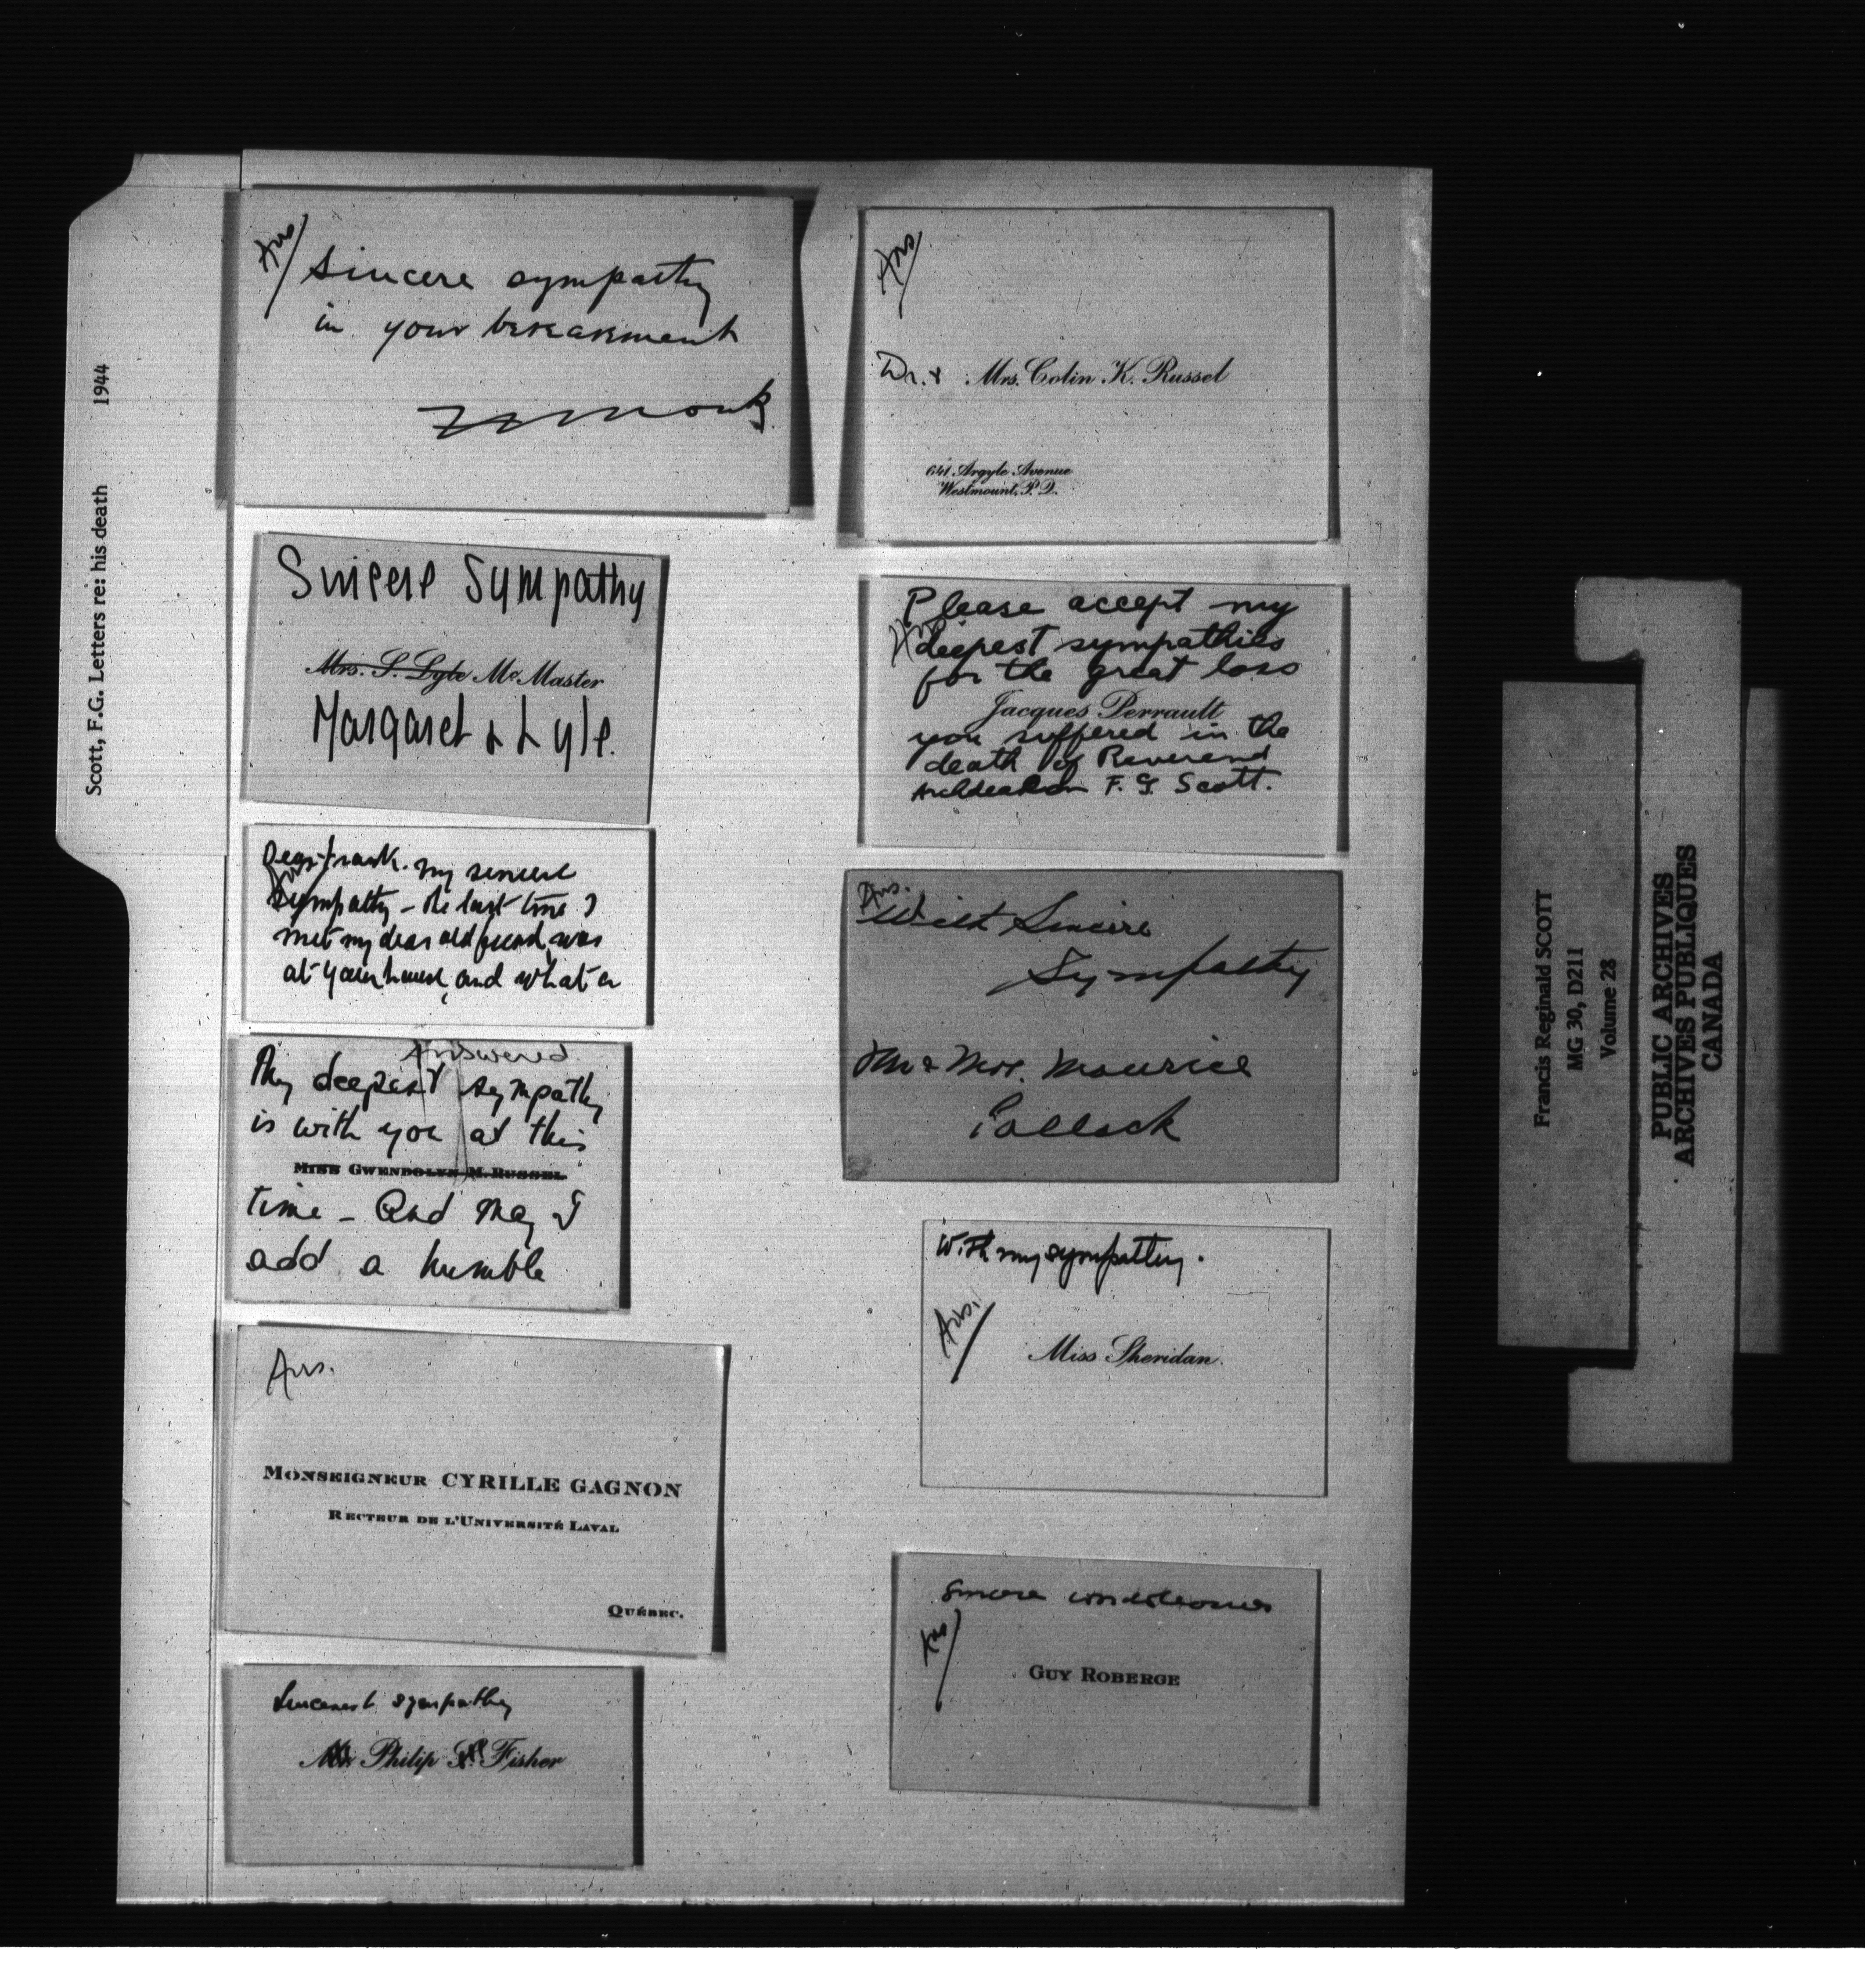 Scott, F.G. Letters re: his death 1944
Ans
Sincere sympathy
in your bereavement
Monk
Sincere Sympathy
Mrs. S. Lyle McMaster
Margaret & Lyle.
Dear Frank. my sincere
Ans
sympathy – the last time I
met my dear old friend, was
at your house, and what a
Answered
My deepest sympathy
is with you at this
Miss Gwendolyn M. Russel
time – And may I
add a humble
Ans.
Monseigneur CYRILLE GAGNON
Recteur de l'Université Laval
Québec.
Sincerest sympathy
Philip Fisher
Ans
Dr. & Mrs. Colin K. Russel
641 Argyle Avenue
Westmount, P.Q.
Please accept my
Ans
deepest sympathies
for the great loss
Jacques Perrault
you suffered in the
death of Reverend
Archdeacon F. G. Scott.
Ans.
With Sincere
Sympathy
Mr & Mrs. Maurice
Pollack
With my sympathy.
Ans.
Miss Sheridan.
Sincere condoleances
Ans
Guy Roberge
Francis Reginald SCOTT
MG 30, D211
Volume 28
PUBLIC ARCHIVES
ARCHIVES PUBLIQUES
CANADA